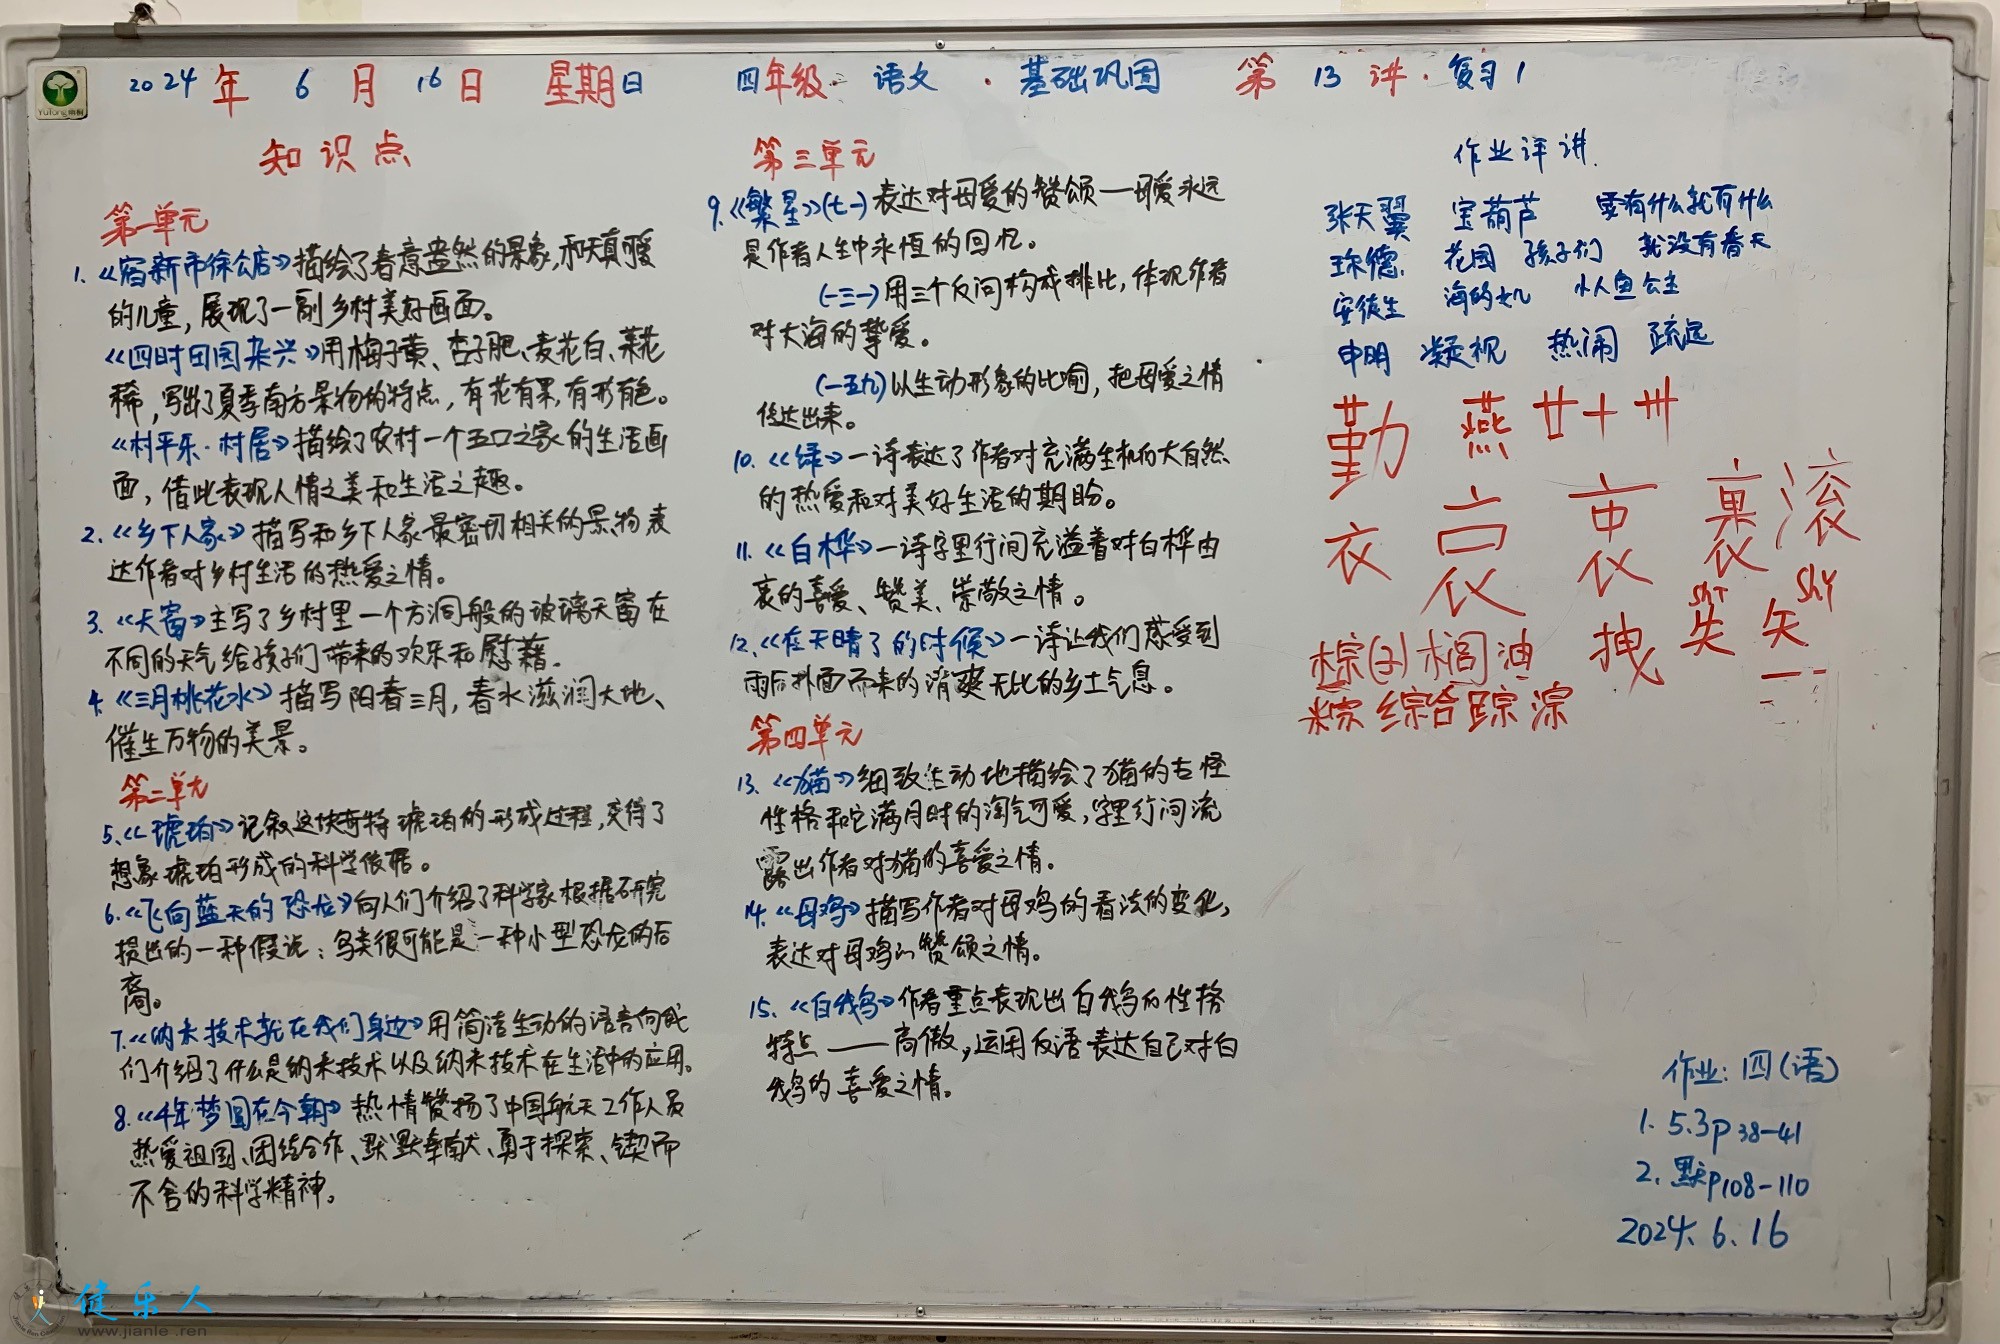 2024年6月16日 星期日 四年级·语文·基础巩固 第13讲·复习1
知识点
第一单元
1.《宿新市徐公店》描绘了春意盎然的景象,和天真可爱
的儿童,展现了一副乡村美好画面。
《四时田园杂兴》用梅子黄、杏子肥、麦花白、菜花
稀,写出了夏季南方景物的特点,有花有果,有形有色。
《村平乐·村居》描绘了农村一个五口之家的生活画
面,借此表现人情之美和生活之趣。
2.《乡下人家》描写和乡下人家最密切相关的景物表
达作者对乡村生活的热爱之情。
3.《天窗》主写了乡村里一个方洞般的玻璃天窗在
不同的天气给孩子们带来的欢乐和慰藉.
4.《三月桃花水》描写阳春三月,春水滋润大地、
催生万物的美景。
第二单元
5.《琥珀》记叙这块奇特琥珀的形成过程,交待了
想象琥珀形成的科学依据。
6.《飞向蓝天的恐龙》向人们介绍了科学家根据研究
提出的一种假说:鸟类很可能是一种小型恐龙的后
裔。
7.《纳米技术就在我们身边》用简洁生动的语言向我
们介绍了什么是纳米技术以及纳米技术在生活中的应用。
8.《千年梦圆在今朝》热情赞扬了中国航天工作人员
热爱祖国、团结合作、默默奉献、勇于探索、锲而
不舍的科学精神。
第三单元
9.《繁星》(七一)表达对母爱的赞颂—母爱永远
是作者人生中永恒的回忆。
(一三一)用三个反问构成排比,体现作者
对大海的挚爱。
(一五九)以生动形象的比喻,把母爱之情
传达出来。
10.《绿》一诗表达了作者对充满生机的大自然
的热爱和对美好生活的期盼。
11.《白桦》一诗字里行间充溢着对白桦由
衷的喜爱、赞美、崇敬之情。
12.《在天晴了的时候》一诗让我们感受到
雨后扑面而来的清爽无比的乡土气息。
第四单元
13.《猫》细致生动地描绘了猫的古怪
性格和它满月时的淘气可爱,字里行间流
露出作者对猫的喜爱之情。
14.《母鸡》描写作者对母鸡的看法的变化,
表达对母鸡的赞颂之情。
15.《白鹅》作者重点表现出白鹅的性格
特点——高傲,运用反语表达自己对白
鹅的喜爱之情。
作业评讲
张天翼 宝葫芦 要有什么就有什么
王尔德. 花园 孩子们 就没有春天
安徒生 海的女儿 小人鱼公主
申明 凝视 热闹 疏远
勤 燕 廿十卅
衣 衷 裹 滚
棕(子)榈油 拽 失 shī 矢 shǐ
粽 综合 踪 淙
作业:四(语)
1. 5.3 P38-41
2. 默P108-110
2024.6.16
Yutong
健乐人
www.jianle.ren